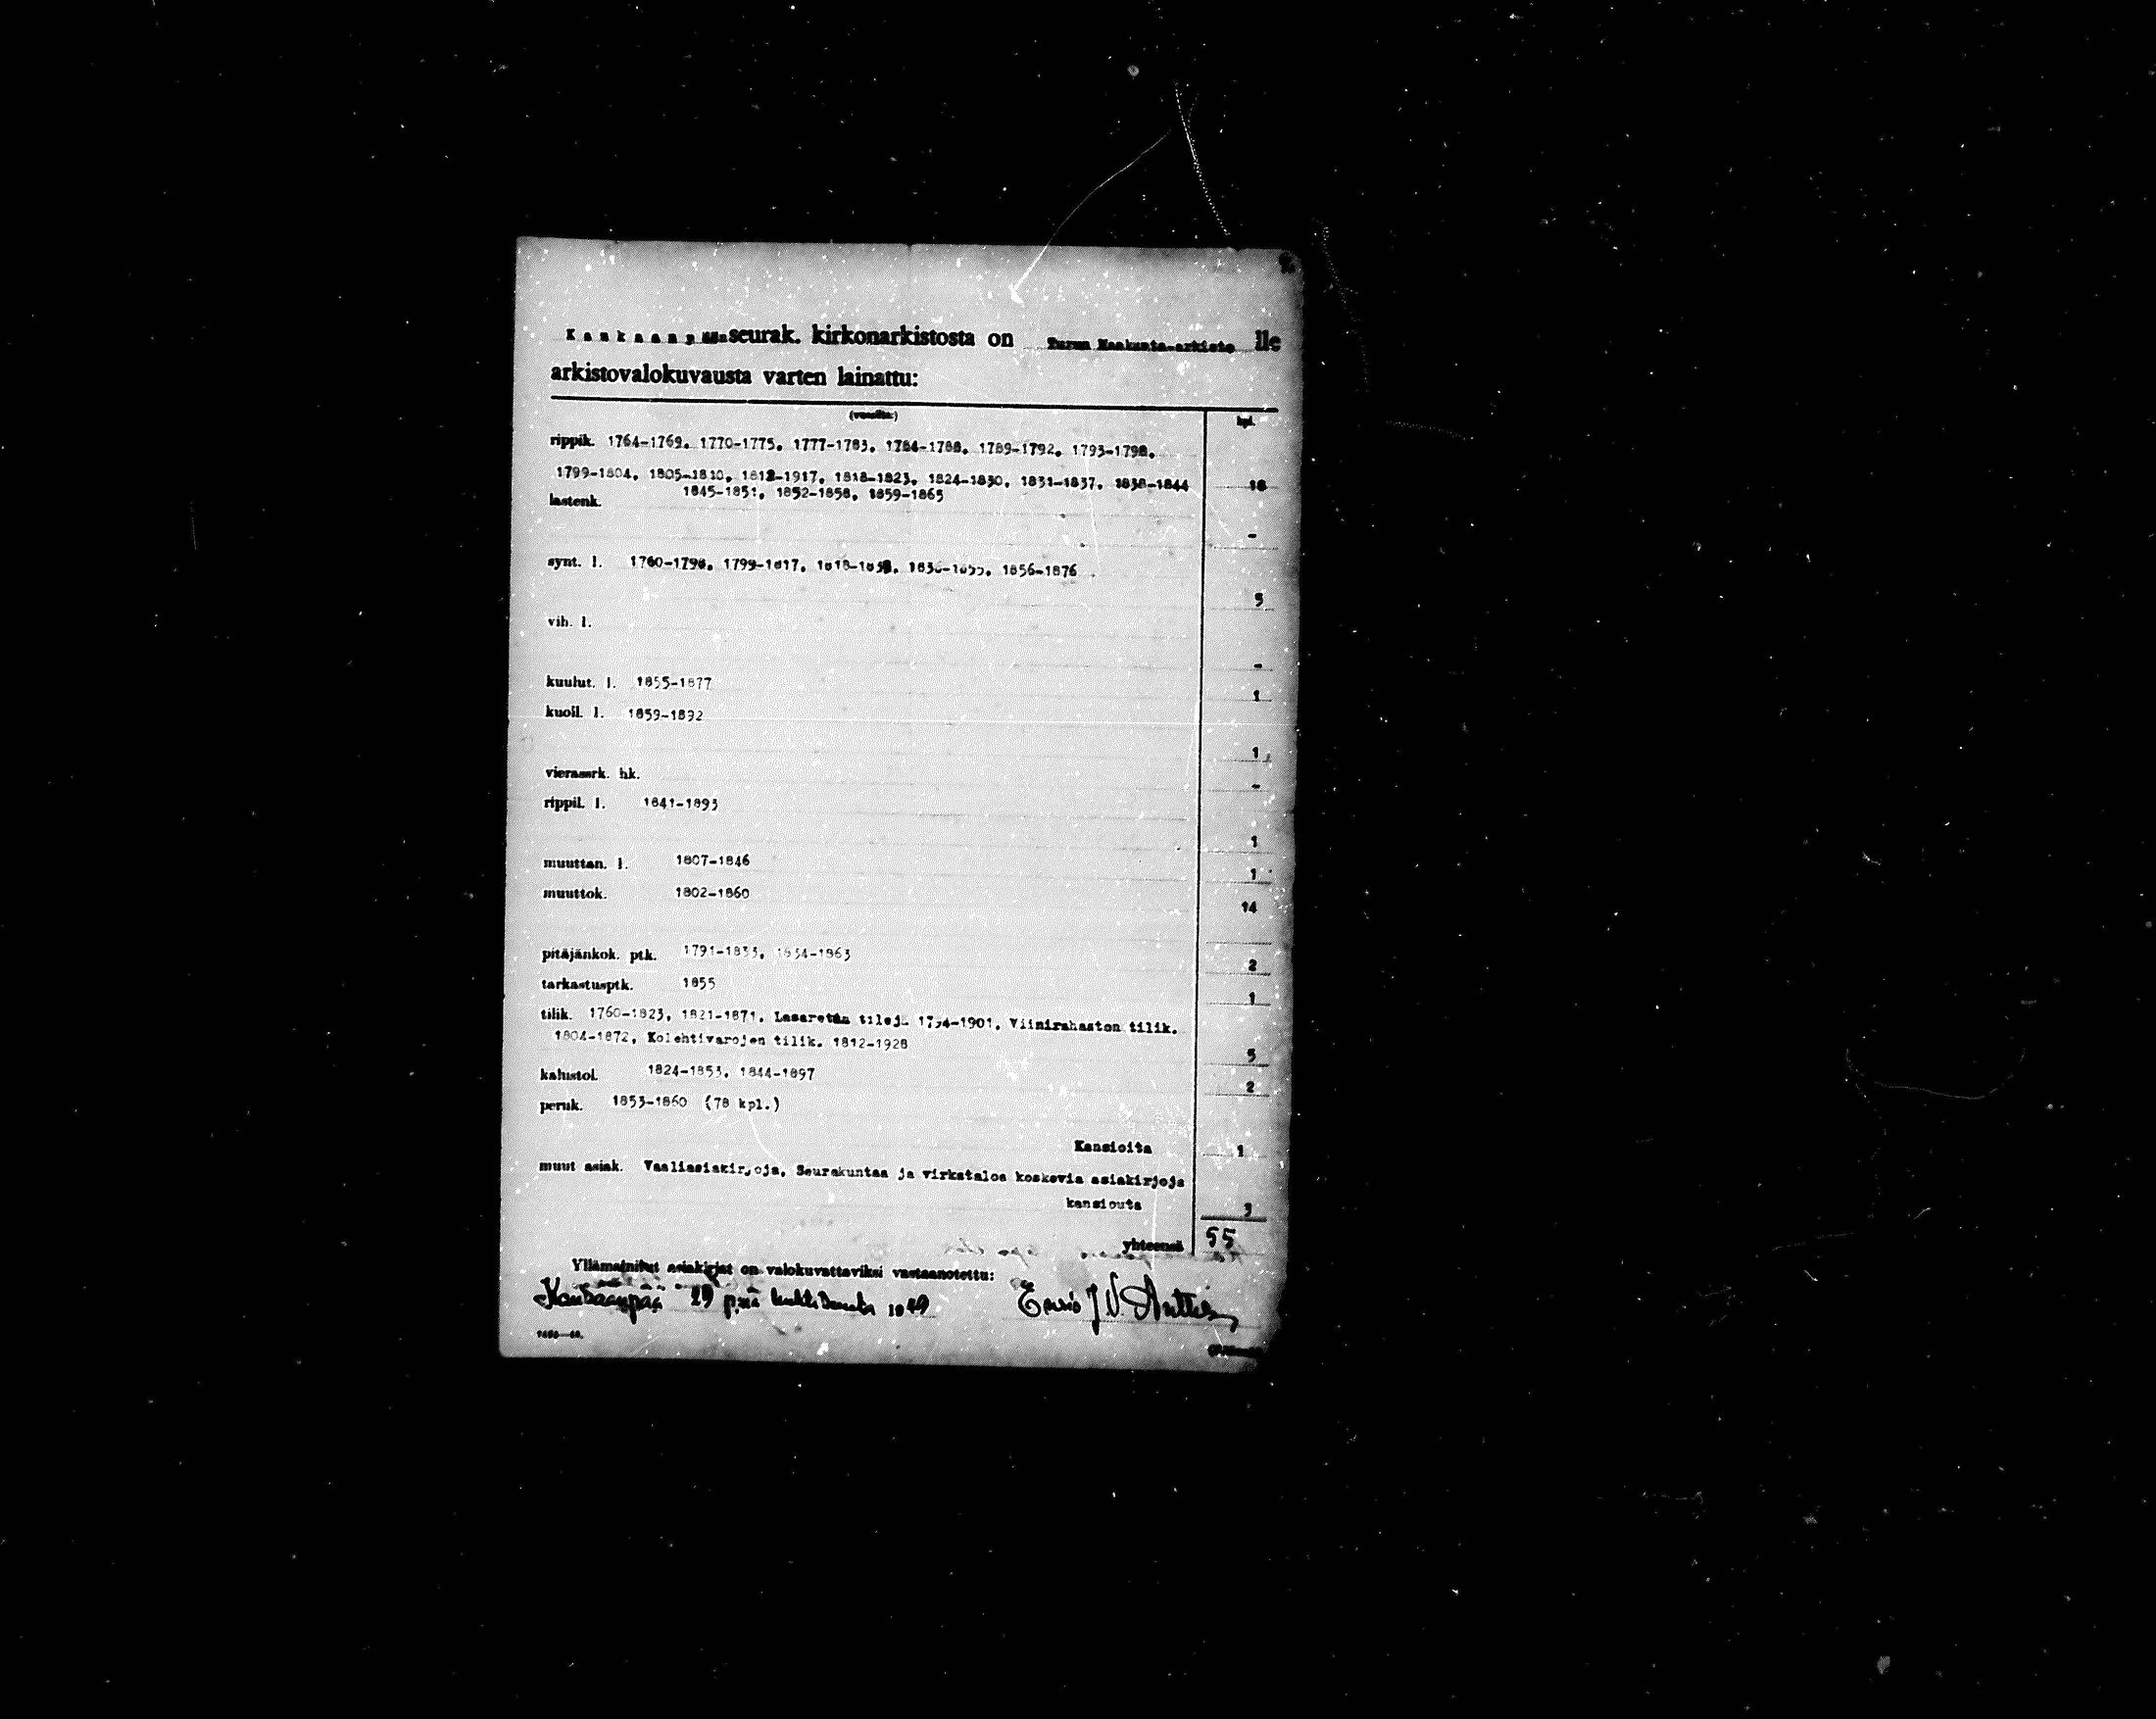 K a n k a a n p ään seurak. kirkonarkistosta on Turun Maakunta-arkisto lle
arkistovalokuvausta varten lainattu:
(vuosilta:) kpl.
rippik. 1764-1769, 1770-1775, 1777-1783, 1784-1788, 1789-1792, 1793-1798,
1799-1804, 1805-1810, 1812-1917, 1818-1823, 1824-1830, 1831-1837, 1838-1844 16
1845-1851, 1852-1858, 1859-1865
lastenk. -
synt. l. 1760-1798, 1799-1817, 1818-1838, 1836-1855, 1856-1876 5
vih. l. -
kuulut. l. 1855-1877 1
kuoll. l. 1859-1892 1
vierassrk. hk. -
rippil. l. 1841-1893 1
muuttan. l. 1807-1846 1
muuttok. 1802-1860 14
pitäjänkok. ptk. 1791-1833, 1834-1863 2
tarkastusptk. 1855 1
tilik. 1760-1823, 1821-1871, Lasaretin tilej. 1794-1901, Viinirahaston tilik.
1804-1872, Kolehtivarojen tilik. 1812-1928 5
kalustol. 1824-1853, 1844-1897 2
peruk. 1853-1860 (78 kpl.)
Kansioita 1
muut asiak. Vaaliasiakirjoja, Seurakuntaa ja virkataloa koskevia asiakirjoja
kansiouta 3
yhteensä 55
Yllämainitut asiakirjat on valokuvattaviksi vastaanotettu:
Kankaanpää 29 p:nä huhtikuuta 1949